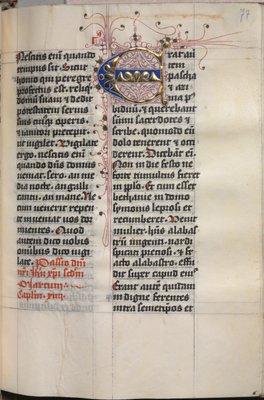 77
Nescitis em̄ quando
tempus sit Sicut
homo qui peregre
profectus est. reliq̄t
domū suam & dedit
potestatem seruis
suis cuiusq; operis
& ianitori precepit
ut vigilet. Vigilate
ergo. nescitis em̄
quando dn̄s domus
veniat. sero. an me
dia nocte. an galli
cantu. an mane. Ne
cum venerit repen
te inveniat vos dor
mientes. Quod
autem dico vobis
omnibus dico vigi
late. Passio dn̄i
nr̄i ih̄u xp̄i sedm̄
Marcum
Caplm̄ xiiij.
Erat au
tem
pascha
& azi
ma p
biduū. & querebant
summi sacerdotes &
scribe. quomodo eū
dolo tenerent & occi
derent. Dicebāt em̄.
Non in die festo ne
forte tumultus fieret
in plo. Et cum esset
bethanie in domo
symonis leprosi &
recumberet. Venit
mulier. hn̄s alabas
trū ungenti. nardi
spicati preciosi. & fr
acto alabastro. effu
dit super caput eius
Erant autē quidam
indigne ferentes
intra semetip̄os et